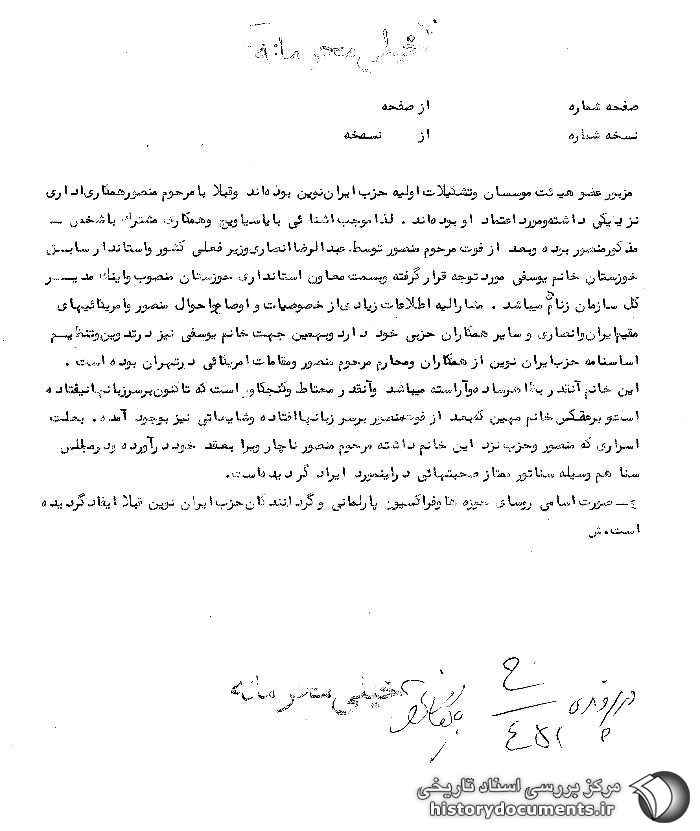 خیلی محرمانه
صفحه شماره از صفحه
نسخه شماره از نسخه
مزبور عضو هیئت موسسان وتشکیلات اولیه حزب ایران نوین بوده اند وقبلا با مرحوم منصور همکاری اداری
نزدیکی داشته ومورد اعتماد او بوده اند . لذا موجب اشنائی باپاسیاویچ وهمکاری مشترک باشخص ــ
مذکور منصور بوده وبعد از فوت مرحوم منصور توسط عبدالرضا انصاری وزیر فعلی کشور واستاندار سابق
خوزستان خانم یوسفی مورد توجه قرار گرفته وبسمت معاون استانداری خوزستان منصوب واینک مدیر
کل سازمان زنان میباشد . مشارالیه اطلاعات زیادی از خصوصیات و اوضاع واحوال منصور وامریکائیهای
مقیم ایران وانصاری و سایر همکاران حزبی خود دارد وبهمین جهت خانم یوسفی نیز در تدوین وتنظیم
اساسنامه حزب ایران نوین از همکاران ومحارم مرحوم منصور ومقامات امریکائی در تهران بوده است .
این خانم آنقدر بظاهر ساده وآراسته میباشد وآنقدر محتاط وکنجکاو است که تاکنون بر سر زبانها نیفتاده
است و برعکس خانم مهین که بعد از فوت منصور بر سر زبانها افتاده وشایعاتی نیز بوجود آمده . بعلت
اسراری که منصور وحزب نزد این خانم داشته مرحوم منصور ناچار ویرا بعقد خود در آورده ودر مجلس
سنا هم وسیله سناتور ممتاز صحبتهائی در اینمورد ایراد گردیده است.
٤ــ صورت اسامی روسای حوزه ها وفراکسیون پارلمانی و گردانندگان حزب ایران نوین قبلا ایفاد گردیده
است.ش
خیلی محرمانه
در پرونده
مرکز بررسی اسناد تاریخی
historydocuments.ir